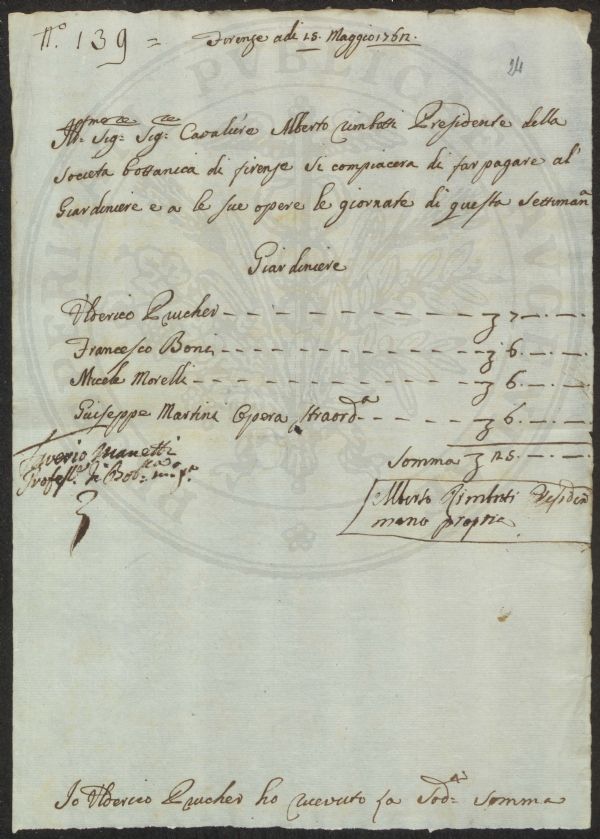 N.° 139 =
Firenze adi 15. Maggio 1762.
24
Ill.mo Sig.re Sig.re Cavaliére Alberto Rimbotti Presidente della
Società bottanica di firenze si compiacera di far pagare al
Giardiniere e a le sue opere le giornate di questa Settiman.a
Giardiniere
Ulderico Prucher - - - - - - - - - 7 - -
Francesco Boni - - - - - - - - - 6 - -
Micele Morelli - - - - - - - - - 6 - -
Guiseppe Martini Opera straord.a - - - - - 6 - -
Somma 25. - -
Saverio Manetti
Profess.re di Bot.ca m.o p.a
Alberto Rimbotti Presiden
mano propria
Io Ulderico Prucher ho ricevuto la Sod.a Somma